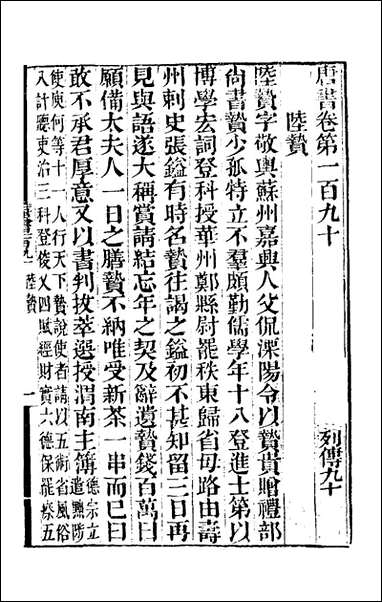 唐書卷第一百九十　列傳九十
陸贄
陸贄字敬輿蘇州嘉興人父侃溧陽令以贄貴贈禮部
尚書贄少孤特立不羣頗勤儒學年十八登進士第以
博學宏詞登科授華州鄭縣尉罷秩東歸省母路由壽
州刺史張鎰有時名贄往謁之鎰初不甚知留三日再
見與語遂大稱賞請結忘年之契及辭遺贄錢百萬曰
願備太夫人一日之膳贄不納唯受新茶一串而已曰
敢不承君厚意又以書判拔萃選授渭南主簿
德宗立
遣黜陟
使庾何等十一人行天下贄說使者請以五術省風俗
八計聽吏治三科登俊乂四賦經財實六德保罷瘵五
陸贄
一